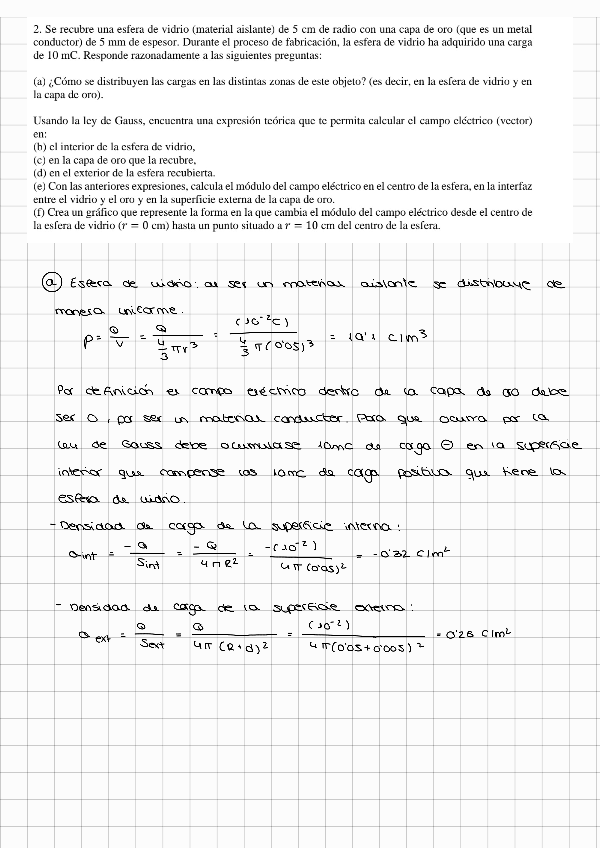 2. Se recubre una esfera de vidrio (material aislante) de 5 cm de radio con una capa de oro (que es un metal
conductor) de 5 mm de espesor. Durante el proceso de fabricación, la esfera de vidrio ha adquirido una carga
de 10 mC. Responde razonadamente a las siguientes preguntas:
(a) ¿Cómo se distribuyen las cargas en las distintas zonas de este objeto? (es decir, en la esfera de vidrio y en
la capa de oro).
Usando la ley de Gauss, encuentra una expresión teórica que te permita calcular el campo eléctrico (vector)
en:
(b) el interior de la esfera de vidrio,
(c) en la capa de oro que la recubre,
(d) en el exterior de la esfera recubierta.
(e) Con las anteriores expresiones, calcula el módulo del campo eléctrico en el centro de la esfera, en la interfaz
entre el vidrio y el oro y en la superficie externa de la capa de oro.
(f) Crea un gráfico que represente la forma en la que cambia el módulo del campo eléctrico desde el centro de
la esfera de vidrio (r = 0 cm) hasta un punto situado a r = 10 cm del centro de la esfera.
(a) Esfera de vidrio: al ser un material aislante se distribuye de
manera uniforme.
ρ = Q/V = Q/(4/3 πr³) = (10⁻²C)/(4/3 π(0'05)³) = 19'1 C/m³
Por definición el campo eléctrico dentro de la capa de oro debe
ser 0, por ser un material conductor. Para que ocurra por la
ley de Gauss debe acumularse 10mC de carga ⊖ en la superficie
interior que compense los 10mC de carga positiva que tiene la
esfera de vidrio.
- Densidad de carga de la superficie interna:
σ int = -Q/Sint = -Q/4πR² = -(10⁻²)/4π(0'05)² = -0'32 C/m²
- Densidad de carga de la superficie externa:
σ ext = Q/Sext = Q/4π(R+d)² = (10⁻²)/4π(0'05+0'005)² = 0'26 C/m²